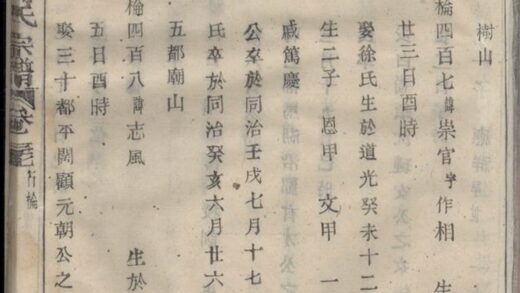 樹山
棆四百七諱崇官字作相 生
廿三日酉時
娶徐氏生於道光癸未十二
生二子 恩甲 文甲 一
戚篤慶
公卒於同治壬戌七月十七
氏卒於同治癸亥六月廿六
五都廟山
棆四百八諱志風 生於
五日酉時
娶三十都平閱顧元朝公之
氏宗譜 卷 行棆